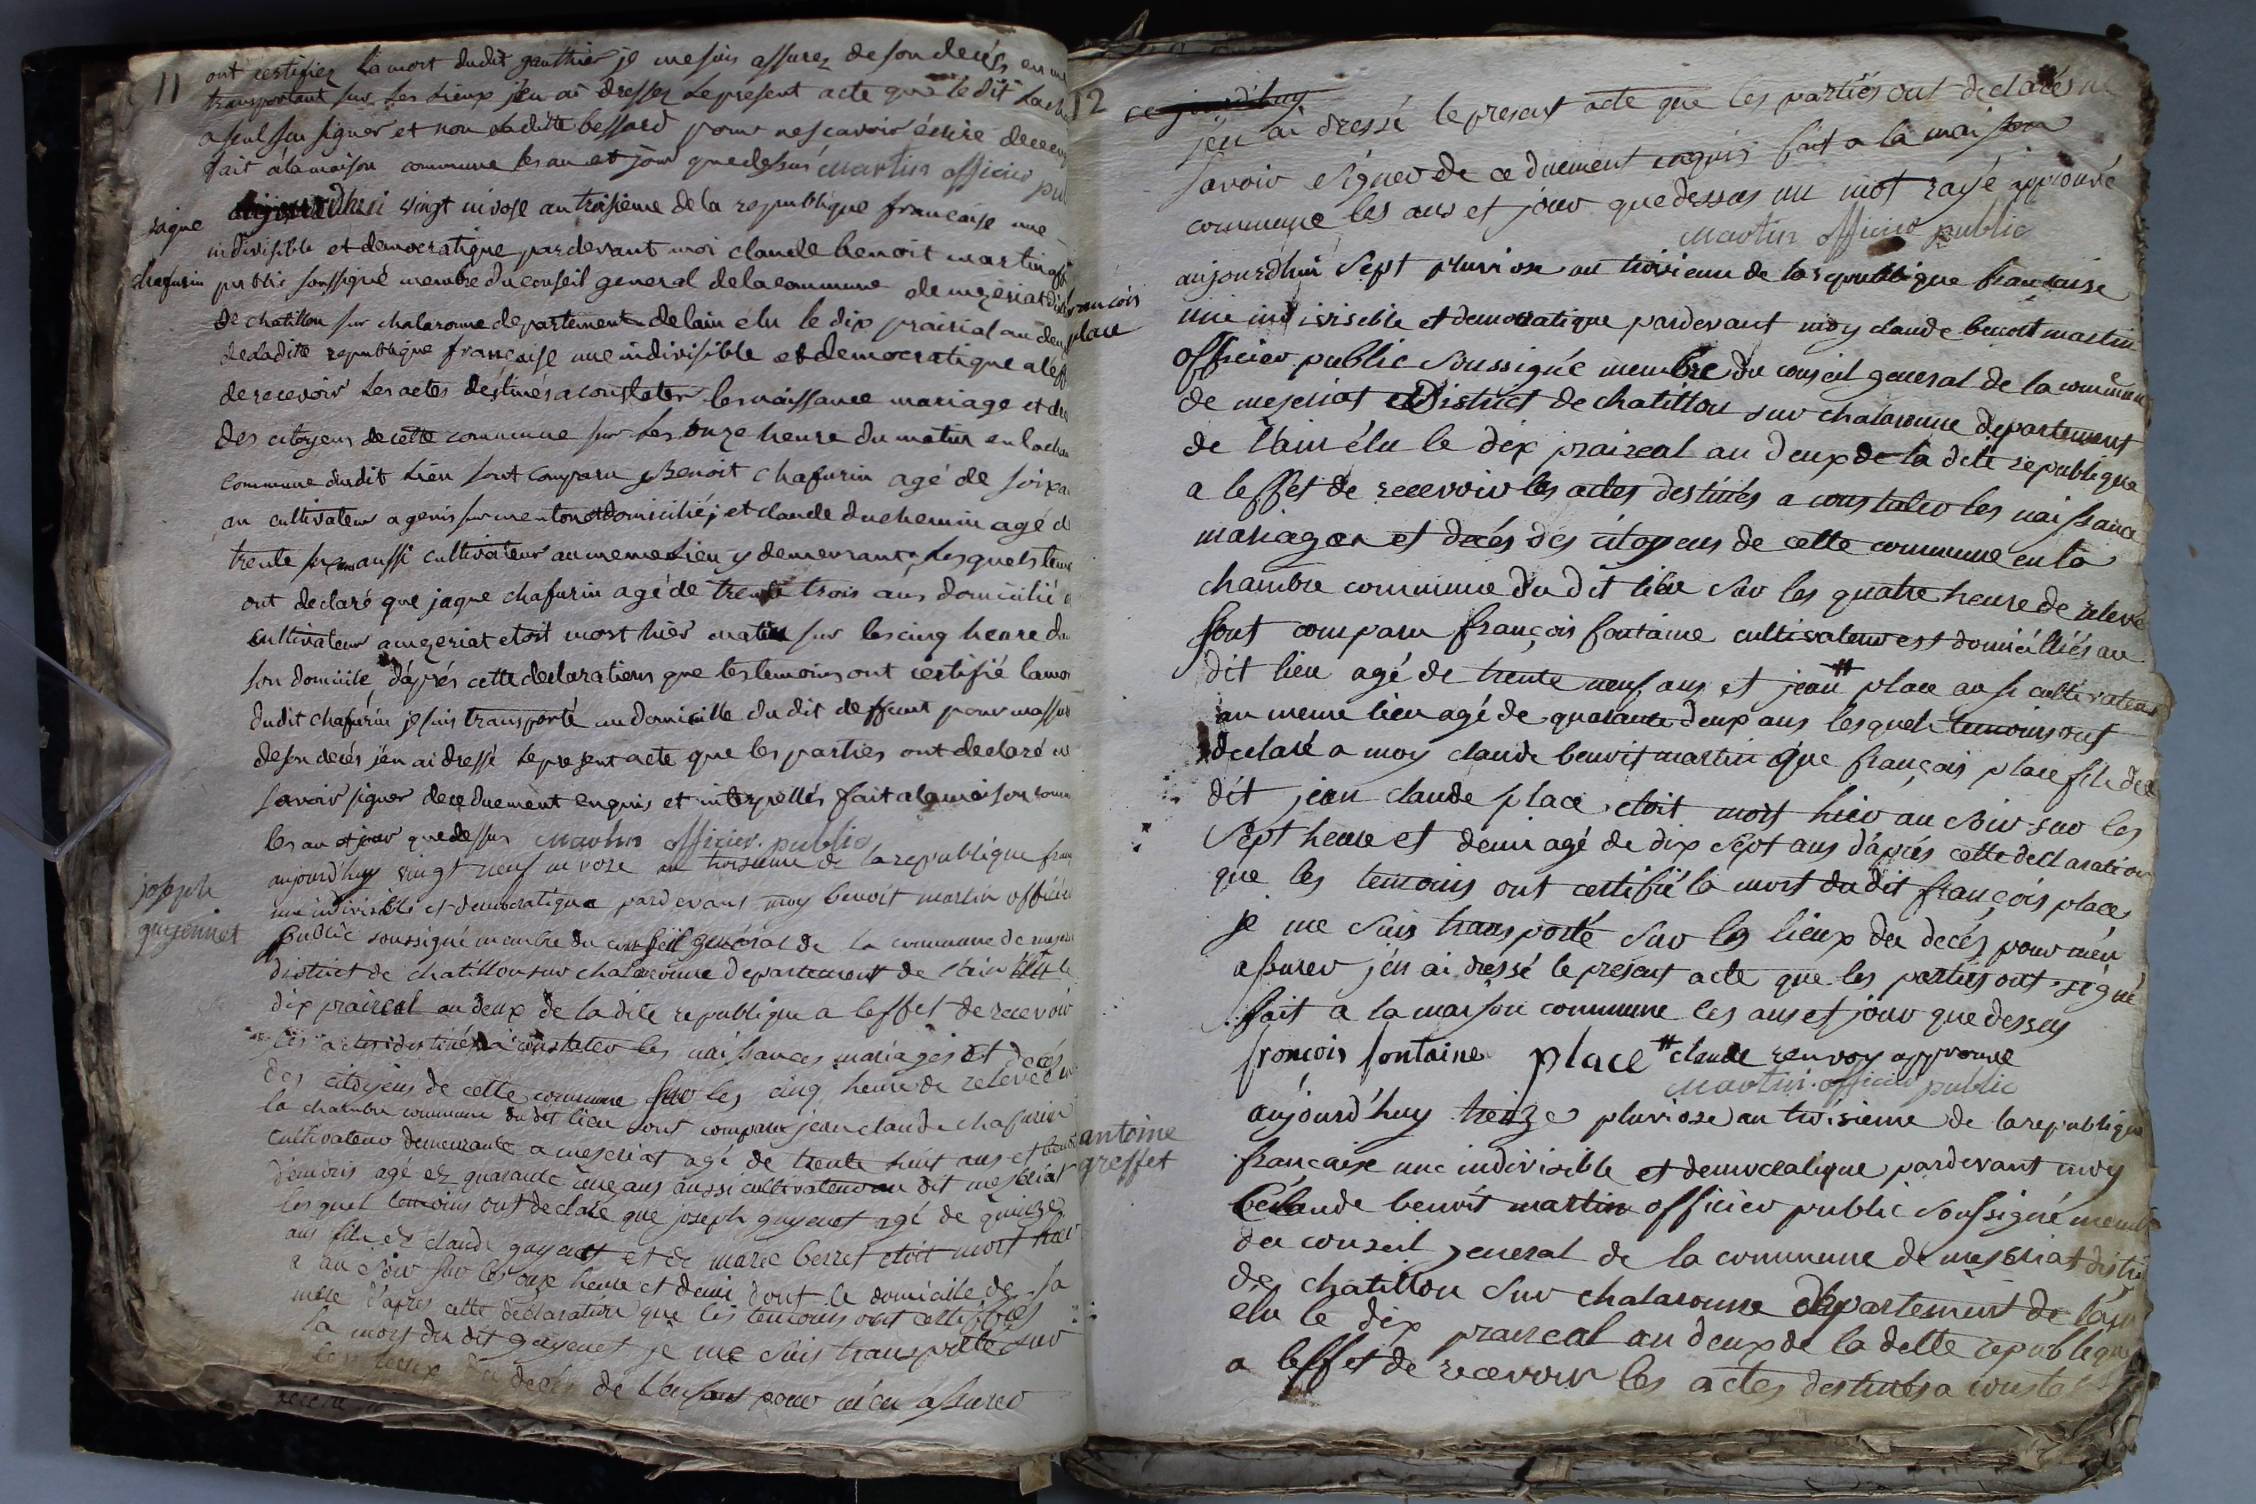 11
ont certifiez la mort dudit gauthier je me suis assurez de son decés en m
transportant sur les lieux j'en ai dressez le present acte que le dit
a seul su signer et non ladite bessard pour ne scavoir écrire
fait a la maison commune les an et jour que dessus martin officier pu
jaque
chafurin
aujourdhui vingt nivose an troisieme de la republique francaise une
indivisible et democratique pardevant moi claude benoit martin
public soussigné membre du conseil general de la commune de mezeriat
de chatillon sur chalaronne departement de lain élu le dix prairial an deux
de ladite republique française une indivisible et democratique a leff
de recevoir les actes destinés a constater les naissance mariage et
des citoyens de cette commune sur les onze heure du matin en la
commune dudit lieu sont comparu Benoit chafurin agé de
an cultivateur a et domicilié, et claude duchemin agé d
trente aussi cultivateur au meme lieu y demeurant, lesquels
ont declaré que jaque chafurin agé de trente trois ans domicilié
cultivateur a mezeriat etoit mort hier matin sur les cinq heure
son domicile, d'aprés cette declarations que les temoins ont certifié la mo
dudit chafurin je suis transporté au domicille du dit deffunt pour massu
de son decés j'en ai dressé le present acte que les parties ont declaré
savoir signer de ce duement enquis et interpellés fait a la maison
les an et jour que dessus martin officier public
joseph
guyennet
aujourd'huy vingt neuf nivose an troisieme de la republique fran
une indivisible et democratique pardevant moy benoit martin offici
public soussigné membre du conseil général de la commune de
district de chatillon sur chalaronne departement de l'ain élu le
dix praireal an deux de la dite republique a leffet de recevoir
les actes destinés a constater les naissances mariages et decés
des citoyens de cette commune sur les cinq heure de relevée
la chambre commune du dit lieu sont comparu jean claude chafurin
cultivateur demeurant a meseriat agé de trente huit ans et
agé de quarante ans aussi cultivateur au dit meseriat
lesquel temoins ont declaré que joseph guyenet agé de quinze
ans fils de claude guyenet et de marie berret etoit mort hier
au soir sur les onze heure et demi dont le domicille de sa
mere d'apres cette declaration que les temoins ont certiffiés
la mort du dit guyenet je me suis transporté sur
les lieux du decés de pour m'en assurer
12
ce jourd'huy
j'en ai dressé le present acte que les parties ont declarés ne
savoir signer de ce duement enquis fait a la maison
commune les ans et jour que dessus un mot rayé approuvé
martin officier public
francois
place
aujourdhui sept pluviose an troisieme de la republique francaise
une indivisible et democratique pardevant moy claude benoit martin
officier public soussigné membre du conseil general de la commune
de meseriat District de chatillon sur chalaronne departement
de l'ain élu le dix praireal an deux de la dite republique
a leffet de recevoir les actes destinés a constater les naissance
mariages et decés des citoyens de cette commune en la
chambre commune du dit lieu sur les quatre heure de relevé
sont comparu françois fontaine cultivateur est domicilliés au
dit lieu agé de trente neuf ans et jean # place aussi cultivateur
au meme lieu agé de quarante deux ans lesquels temoins ont
declaré a moy claude benoit martin que françois place fils de
dit jean claude place etoit mort hier au soir sur les
sept heure et demi agé de dix sept ans d'aprés cette declaration
que les temoins ont certifié la mort du dit françois place
je me suis transporté sur les lieux du decés pour m'en
assurer j'en ai dressé le present acte que les parties ont signé
fait a la maison commune les ans et jour que dessus
françois fontaine place # claude renvoy approuvé
martin officier public
antoine
greffet
aujourd'huy treize pluviose an troisieme de la republique
française une indivisible et democratique pardevant moy
claude benoit martin officier public soussigné memb
du conseil general de la commune de meseriat distri
de chatillon sur chalaronne departement de lain
elu le dix praireal an deux de la dette republique
a leffet de recevoir les actes destinés a constat